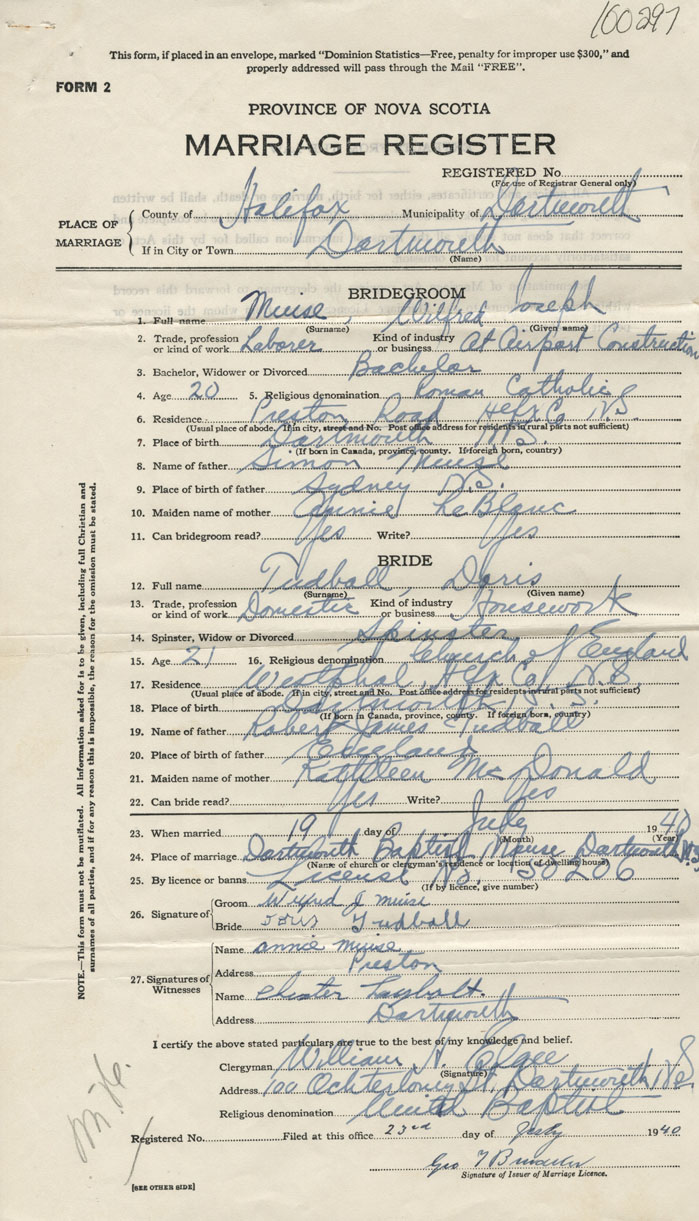 100297
This form, if placed in an envelope, marked "Dominion Statistics—Free, penalty for improper use $300," and
properly addressed will pass through the Mail "FREE".
FORM 2
PROVINCE OF NOVA SCOTIA
MARRIAGE REGISTER
REGISTERED No.
(For use of Registrar General only)
PLACE OF MARRIAGE
County of Halifax Municipality of Dartmouth
If in City or Town Dartmouth
(Name)
BRIDEGROOM
1. Full name Muise, Wilfred Joseph
(Surname) (Given name)
2. Trade, profession or kind of work Laborer Kind of industry or business At Airport Construction
3. Bachelor, Widower or Divorced Bachelor
4. Age 20 5. Religious denomination Roman Catholic
6. Residence Preston Road Hfx Co. N.S.
(Usual place of abode. If in city, street and No. Post office address for residents in rural parts not sufficient)
7. Place of birth Dartmouth N.S.
(If born in Canada, province, county. If foreign born, country)
8. Name of father Simon Muise
9. Place of birth of father Sydney N.S.
10. Maiden name of mother Annie LeBlanc
11. Can bridegroom read? Yes Write? Yes
BRIDE
12. Full name Tudball, Doris
(Surname) (Given name)
13. Trade, profession or kind of work Domestic Kind of industry or business Housework
14. Spinster, Widow or Divorced Spinster
15. Age 21 16. Religious denomination Church of England
17. Residence Westphal, Hfx Co. N.S.
(Usual place of abode. If in city, street and No. Post office address for residents in rural parts not sufficient)
18. Place of birth Dartmouth N.S.
(If born in Canada, province, county. If foreign born, country)
19. Name of father Robert James Tudball
20. Place of birth of father England
21. Maiden name of mother Kathleen McDonald
22. Can bride read? Yes Write? Yes
23. When married 19 day of July 1940
(Month) (Year)
24. Place of marriage Dartmouth Baptist Manse Dartmouth N.S.
(Name of church or clergyman's residence or location of dwelling house)
25. By licence or banns License No. 50206
(If by licence, give number)
26. Signature of
Groom Wilfred J muise
Bride Doris Tudball
27. Signatures of Witnesses
Name annie muise
Address Preston
Name
Address Dartmouth
I certify the above stated particulars are true to the best of my knowledge and belief.
Clergyman William A. Elgee
(Signature)
Address 100 Ochterloney St. Dartmouth N.S.
Religious denomination United Baptist
Registered No. Filed at this office 23rd day of July 1940
Geo
Signature of Issuer of Marriage Licence.
(SEE OTHER SIDE)
NOTE.—This form must not be mutilated. All information asked for is to be given, including full Christian and
surnames of all parties, and if for any reason this is impossible, the reason for the omission must be stated.